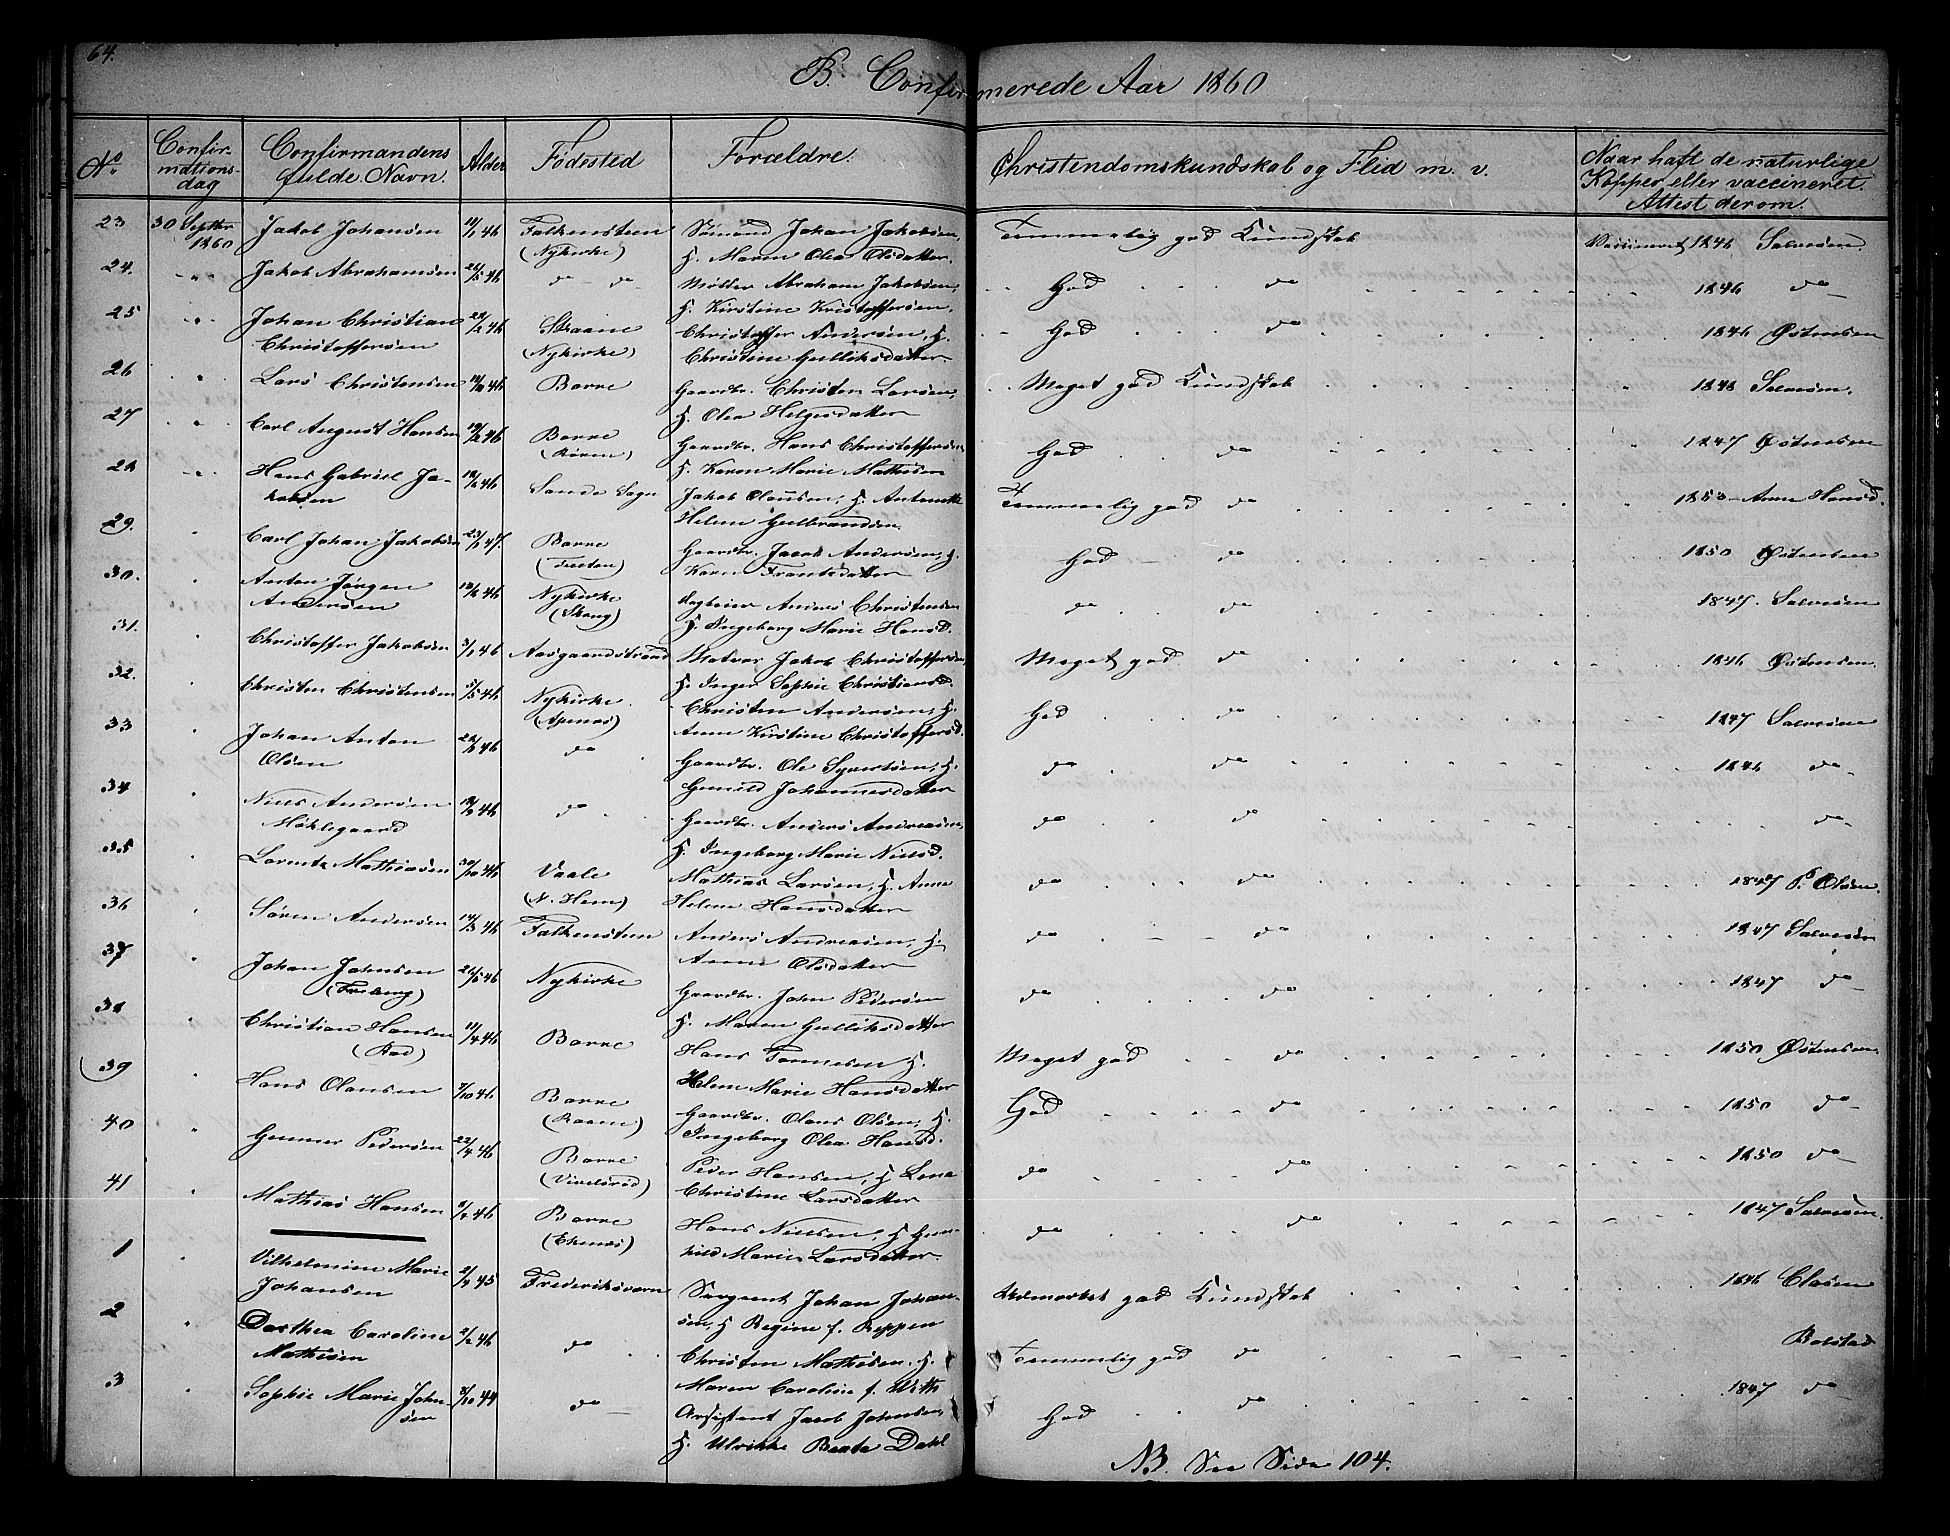 64.
B. Confirmerede Aar 1860
No. Confirmations-dag Confirmandens fulde Navn. Alder Födested Forældre. Christendomskundskab og Flid m. v. Naar haft de naturlige Kopper eller vaccineret. Attest derom.
23 30 Septbr 1860 Jakob Johansen 46 Falkensteen (Nykirke) Sömand Johan Jakobsen, H. Maren Olea Olsdatter. Temmelig god Kundskab 1846 Salvesen.
24. " Jakob Abrahamsen 46 do - do Möller Abraham Jakobsen, H. Kirstine Kristoffersen. God do 1846 do
25 " Johan Christian Christoffersen 46 Straane (Nykirke) Christoffer Andersen, H. Christine Gulliksdatter God do 1846 Østensen
26 " Lars Christensen 46 Borre Gaardbr. Christen Larsen, H. Olea Helgesdatter Meget god Kundskab 1848 Salvesen.
27 " Carl August Hansen 46 Borre Gaardbr. Hans Christoffersen, H. Karen Marie Mathisen God do 1847 Østensen
28 " Hans Gabriel Jakobsen 46 Sande Sogn Jakob Olausen, H. Antonette Helene Gulbrandsen. Temmelig god do 1853 Anne Hansd.
29. " Carl Johan Jakobsen 23/1 47. Borre Gaardbr. Jacob Andersen, H. Karen Frantsdatter God do 1850 Østensen
30. " Anton Jörgen Andersen 46 Nykirke (Skaug) Anders Christensen H. Ingeborg Marie Hansd. do do 1847. Salvesen
31. " Christoffer Jakobsen 3/1 46 Aasgaardstrand Matros Jakob Christoffersen, H. Inger Sophie Christiansd. Meget god do 1846 Østensen.
32. Christen Christensen 5/5 46 Nykirke (Apenæs) Christen Andersen, H. Anne Kirstine Christoffersd. God do 1847 Salvesen
33 " Johan Anton Olsen 46 do Gaardbr. Ole Syvertsen, H. Gunild Johannesdatter do do 1846 do
34 " Niels Andersen Möklegaard 46 do Gaardbr. Anders Andreasen, H. Ingeborg Marie Nielsd. do do do
35 " Lorentz Mathiasen 30/10 46 Vaale (N. Hem) Mathias Larsen, H. Anne Helene Hansdatter do do 1847 P. Olsen.
36 " Sören Andersen 46 Falkensteen Anders Andreasen, H. Anne Olsdatter do do 1847 Salvesen
37 " Johan Johnsen 46 Nykirke Gaardbr. John Pedersen H. Maren Gulliksdatter do do 1847 do
38 " Christian Hansen (Rød) 46 Borre Hans H. Helene Marie Hansdatter Meget god do 1850 Østensen.
39 " Hans Olausen 46 Borre Gaardbr. Olaus Olsen, H. Ingeborg Olea Hansd. God do 1850 do
40 " Gunner Pedersen 22/4 46 Borre Peder Hansen, H Lena Christine Larsdatter do do 1850 do
41 " Mathias Hansen 46 Borre (Ekenæs) Hans Nielsen, H Gunhild Marie Larsdatter. do do 1847 Salvesen.
1 " Vilhelmine Marie Johansen 45 Frederiksværn Sergeant Johan Johansen, H Regine f. Reppen Udmærket god Kundskab 1846 Clasen
2 " Dorthea Caroline Mathisen 46 do Christen Mathisen, H. Maren Caroline f. With Temmelig god do Bolstad
3 " Sophie Marie Johnsen 44 do Assistent Jacob Johnsen, H. Ulrikke Beata Dahl God do 1847 do
NB. See Side 104.